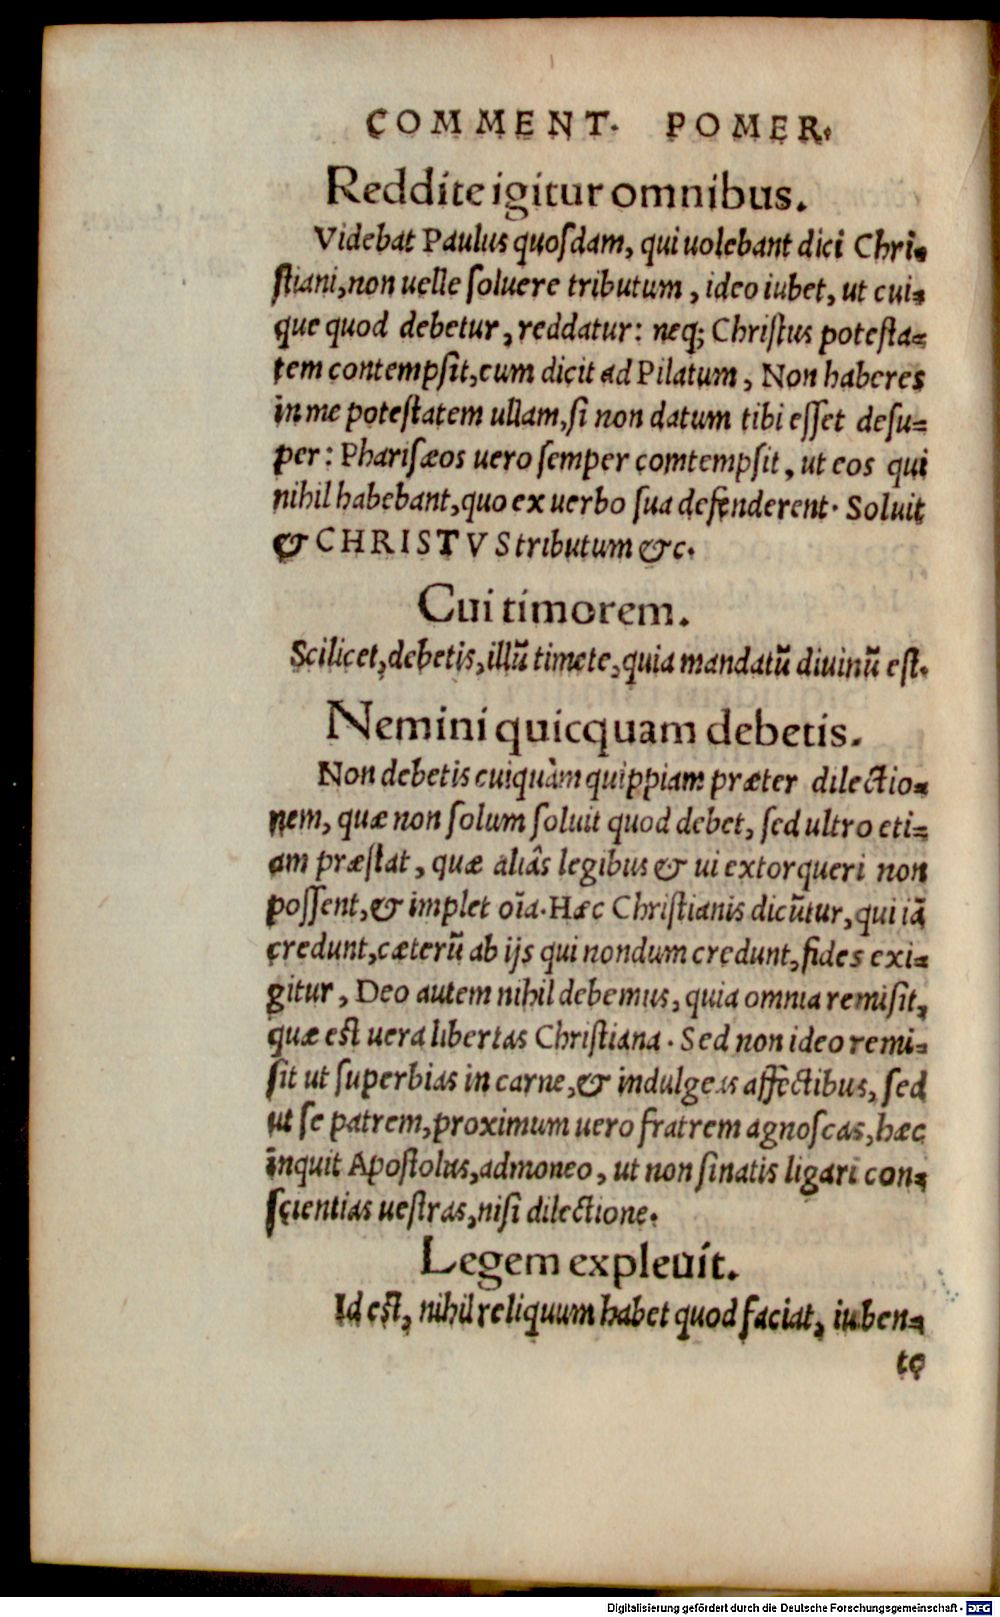 COMMENT. POMER.
Reddite igitur omnibus.
Videbat Paulus quoſdam, qui uolebant dici Chri-
ſtiani, non uelle ſoluere tributum, ideo iubet, ut cui-
que quod debetur, reddatur: neq; Chriſtus poteſta-
tem contempſit, cum dicit ad Pilatum, Non haberes
in me poteſtatem ullam, ſi non datum tibi eſſet deſu-
per: Phariſæos uero ſemper comtempſit, ut eos qui
nihil habebant, quo ex uerbo ſua defenderent. Soluit
& CHRISTVS tributum &c.
Cui timorem.
Scilicet, debetis, illū timete, quia mandatū diuinū eſt.
Nemini quicquam debetis.
Non debetis cuiquàm quippiam præter dilectio-
nem, quæ non ſolum ſoluit quod debet, ſed ultro eti-
am præſtat, quæ aliâs legibus & ui extorqueri non
poſſent, & implet oīa. Hæc Chriſtianis dicūtur, qui iā
credunt, cæterū ab ijs qui nondum credunt, fides exi-
gitur, Deo autem nihil debemus, quia omnia remiſit,
quæ eſt uera libertas Chriſtiana. Sed non ideo remi-
ſit ut ſuperbias in carne, & indulgeas affectibus, ſed
ut ſe patrem, proximum uero fratrem agnoſcas, hæc
inquit Apoſtolus, admoneo, ut non ſinatis ligari con-
ſcientias ueſtras, niſi dilectione.
Legem expleuit.
Id eſt, nihil reliquum habet quod faciat, iuben-
te
Digitalisierung gefördert durch die Deutsche Forschungsgemeinschaft - DFG